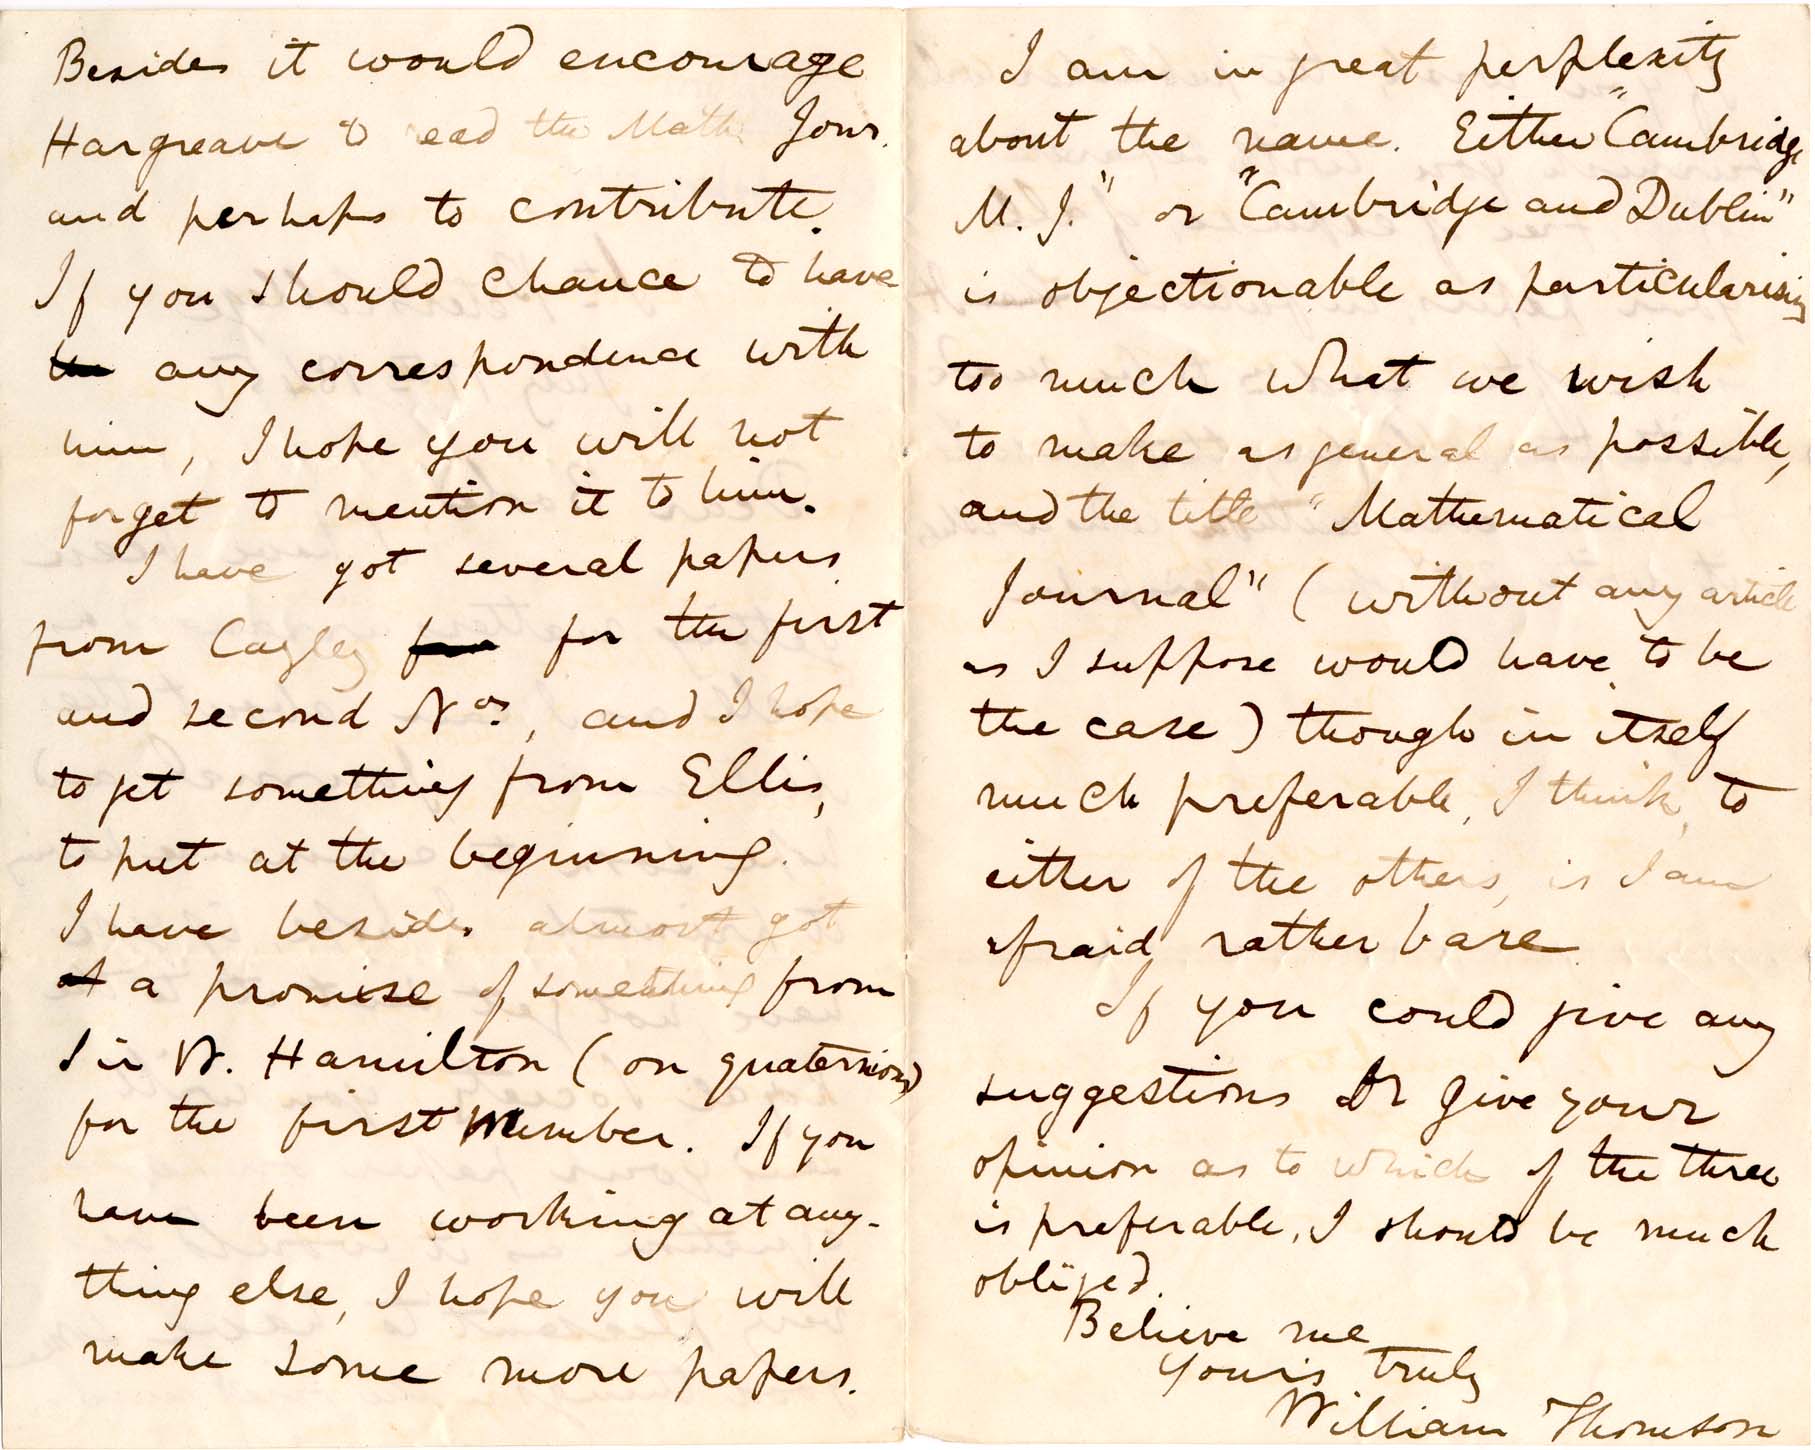 Besides it would encourage
Hargreave to read the Math. Jour.
and perhaps to contribute.
If you should chance to have
any correspondence with
him, I hope you will not
forget to mention it to him.
I have got several papers
from Cayley for the first
and second Nos., and I hope
to get something from Ellis,
to put at the beginning.
I have besides almost got
a promise of something from
Sir W. Hamilton (on quaternions)
for the first number. If you
have been working at any-
thing else, I hope you will
make some more papers.
I am in great perplexity
about the name. Either "Cambridge
M. J." or "Cambridge and Dublin"
is objectionable as particularising
too much what we wish
to make as general as possible,
and the title "Mathematical
Journal" (without any article
as I suppose would have to be
the case) though in itself
much preferable, I think, to
either of the others, is I am
afraid rather bare.
If you could give any
suggestions or give your
opinion as to which of the three
is preferable, I should be much
obliged.
Believe me
yours truly
William Thomson